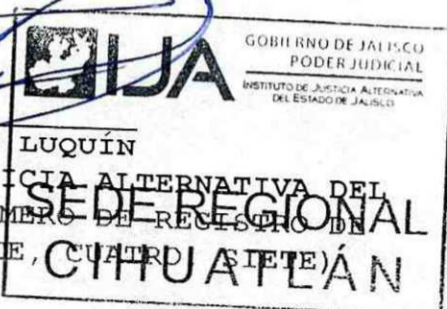 IJA
GOBIERNO DE JALISCO
PODER JUDICIAL
INSTITUTO DE JUSTICIA ALTERNATIVA
DEL ESTADO DE JALISCO
LUQUÍN
ICIA ALTERNATIVA DEL
SEDE REGIONAL
MERO DE REGISTRO DE
E, CUATRO SIETE)
CIHUATLÁN